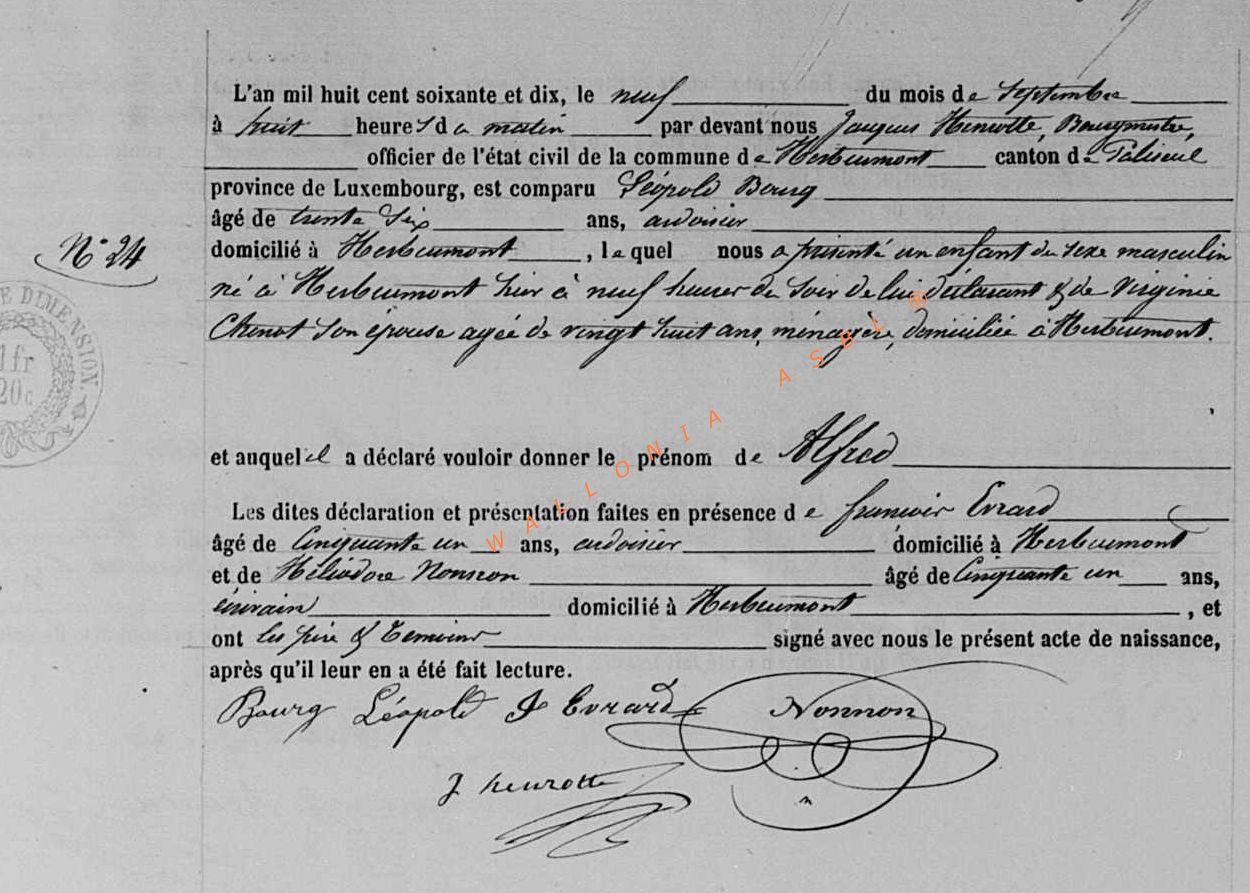 L'an mil huit cent soixante et dix, le neuf du mois de Septembre
à huit heures du matin par devant nous Jacques Henrotte, Bourgmestre,
officier de l'état civil de la commune de Herbeumont canton de Paliseul
province de Luxembourg, est comparu Léopold Bourg
âgé de trente six ans, ardoisier
N° 24
domicilié à Herbeumont, lequel nous a présenté un enfant du sexe masculin
né à Herbeumont hier à neuf heures du soir de lui déclarant & de Virginie
Chenot son épouse agée de vingt huit ans, ménagère, domiciliée à Herbeumont.
E DIMENSION
1 fr
20c
et auquel il a déclaré vouloir donner le prénom de Alfred
Les dites déclaration et présentation faites en présence de francois Evrard
âgé de Cinquante un ans, ardoisier domicilié à Herbeumont
et de Héliodore Nonnon âgé de Cinquante un ans,
écrivain domicilié à Herbeumont, et
ont les père & temoins signé avec nous le présent acte de naissance,
après qu'il leur en a été fait lecture.
Bourg Léopold F Evrard Nonnon
J henrotte
WALLONIA ASBL ®